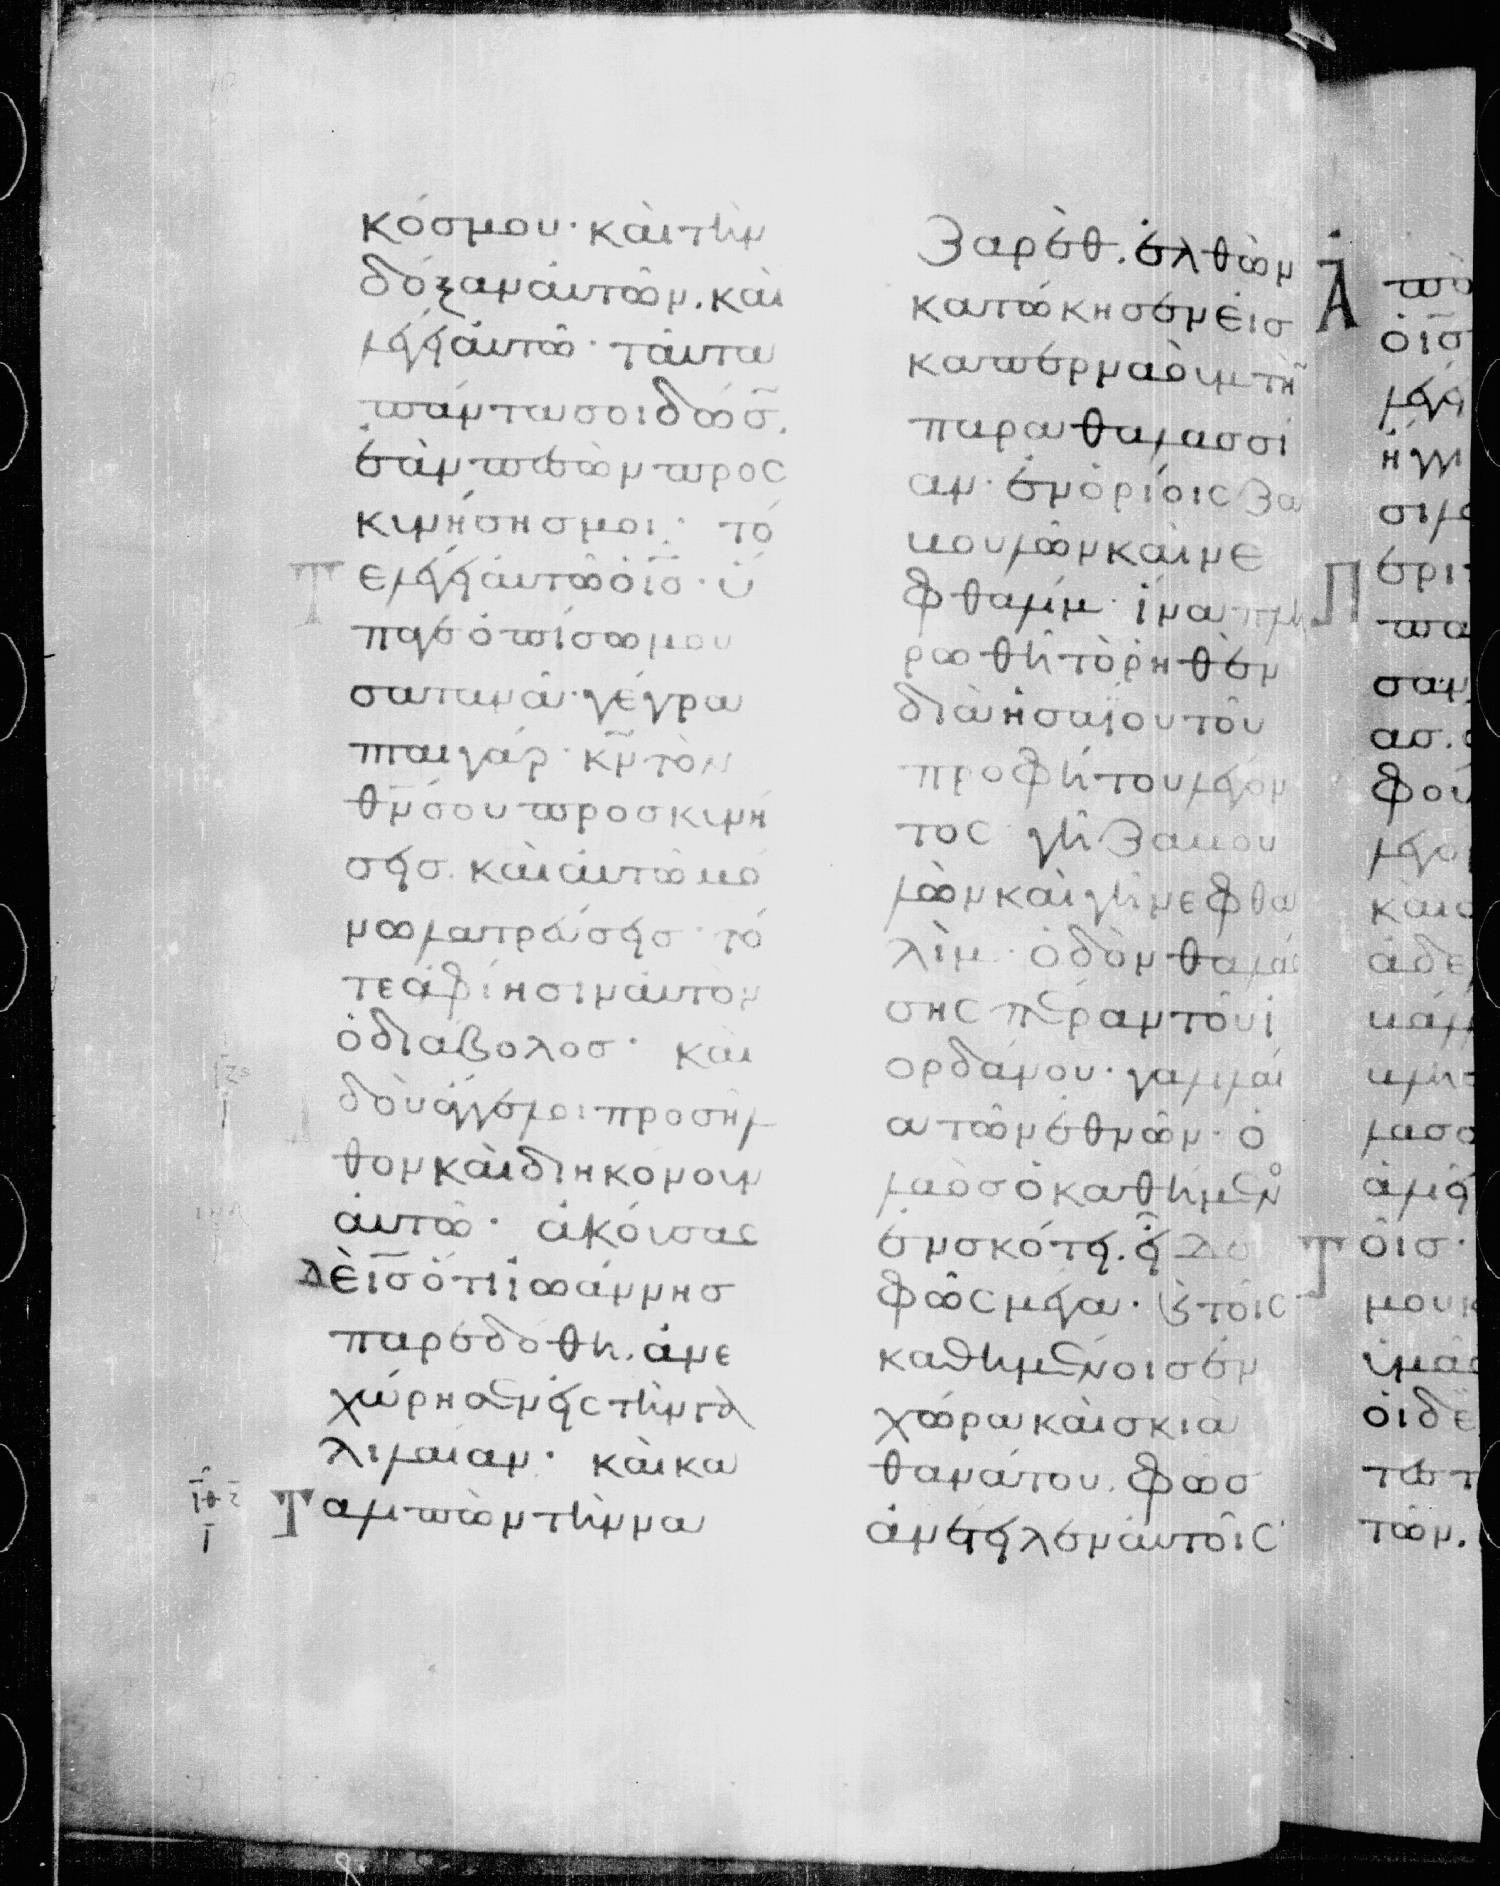 κόσμου· καὶ τὴν
δόξαν ἀυτῶν. καὶ
λέγει ἀυτῶ· ταύτα
πάντα σοι δώσ͂.
ἐὰν πεσὼν προς
κυνήσησ μοι· τό
Τε λέγει ἀυτῶ ὁ ισ̅· ὕ
παγε ὀπίσω μου
σατανᾶ· γέγρα
πται γάρ· κν̅ τὸν
θν̅ σου προσκυνή
σεισ. καὶ ἀυτῶ μό
νω λατρεύσεισ· τό
τε ἀφίησιν ἀυτὸν
ὁ διάβολοσ· καὶ
ἰδοὺ ἄγγελοι προσῆλ
θον καὶ διηκόνουν
ἀυτῶ· ἀκούσας
Δὲ ισ̅ ὅτι ἰωάννησ
παρεδόθη. ἀνε
χώρησεν εἰς τὴν γα
λιλαίαν· καὶ κα
Ταλιπὼν τὴν να
ζαρέθ. ἐλθὼν
κατώκησεν εἰσ
καπερναοὺμ τὴ͂
παραθαλασσί
αν· ἐν ὁρίοις ζα
βουλὼν καὶ νε
φθαλήμ· ἵνα πλη
ρωθῆ τὸ ρηθὲν
διὰ ἡσαΐου τοῦ
προφήτου λέγον
τος γῆ ζαβου
λὼν καὶ γῆ νεφθα
λὶμ· ὁδὸν θαλάσ
σης πέραν τοῦ ἰ
ορδάνου· γαλιλαί
α τῶν ἐθνῶν· ὁ
λαὸσ ὁ καθήμενͦ
ἐν σκότει. εἶδε
φῶς μέγα· κ̀ τοῖς
καθημένοισ ἐν
χώρα καὶ σκιᾶ
θανάτου. φῶσ
ἀνέτειλεν ἀυτοῖς·
Ἀ
πὸ
ὁ ισ̅
λέγ
ἤγγι
σιλε
Π
ερι
πα
σαν
ασ.
φου
λεγο
καὶ
ἀδε
βάλλ
λασσ
ἁλιε
Τ
οῖσ·
μου κ
ὑμᾶς
ὁι δὲ
τὰ
των.